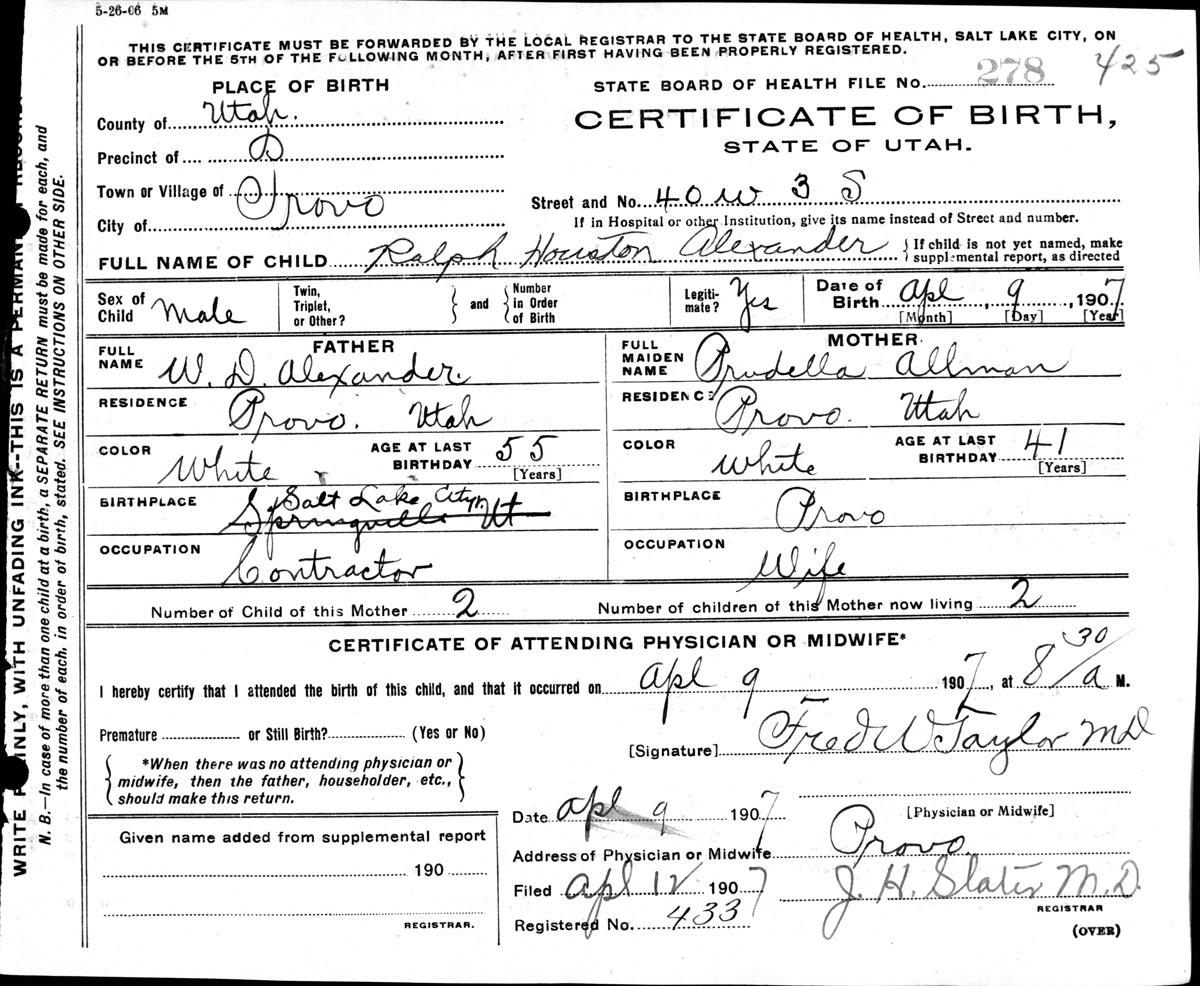 5-26-06 5M
THIS CERTIFICATE MUST BE FORWARDED BY THE LOCAL REGISTRAR TO THE STATE BOARD OF HEALTH, SALT LAKE CITY, ON
OR BEFORE THE 5TH OF THE FOLLOWING MONTH, AFTER FIRST HAVING BEEN PROPERLY REGISTERED.
PLACE OF BIRTH
STATE BOARD OF HEALTH FILE No. 278 425
County of Utah.
CERTIFICATE OF BIRTH,
STATE OF UTAH.
Precinct of
Town or Village of
City of Provo
Street and No. 40 W 3 S
If in Hospital or other Institution, give its name instead of Street and number.
FULL NAME OF CHILD Ralph Houston Alexander { If child is not yet named, make
supplemental report, as directed
Sex of Child Male
Twin, Triplet, or Other? } and { Number in Order of Birth
Legiti-mate? Yes
Date of Birth Apl, 9, 1907
[Month] [Day] [Year]
FATHER
FULL NAME W. D. Alexander.
RESIDENCE Provo. Utah
COLOR White
AGE AT LAST BIRTHDAY 55 [Years]
BIRTHPLACE Salt Lake City
Springville Ut
OCCUPATION Contractor
MOTHER
FULL MAIDEN NAME Prudella Allman
RESIDENCE Provo. Utah
COLOR White
AGE AT LAST BIRTHDAY 41 [Years]
BIRTHPLACE Provo
OCCUPATION Wife
Number of Child of this Mother 2 Number of children of this Mother now living 2
CERTIFICATE OF ATTENDING PHYSICIAN OR MIDWIFE*
I hereby certify that I attended the birth of this child, and that it occurred on Apl 9 1907, at 8 30/a M.
Premature or Still Birth? (Yes or No)
[Signature] Fred W Taylor MD
{ *When there was no attending physician or
midwife, then the father, householder, etc.,
should make this return. }
Date Apl 9 1907
[Physician or Midwife]
Given name added from supplemental report
190
REGISTRAR.
Address of Physician or Midwife Provo.
Filed Apl 12 1907 J. H. Slater M.D.
REGISTRAR
Registered No. 433
(OVER)
WRITE PLAINLY, WITH UNFADING INK--THIS IS A PERMANENT RECORD.
N. B.—In case of more than one child at a birth, a SEPARATE RETURN must be made for each, and
the number of each, in order of birth, stated. SEE INSTRUCTIONS ON OTHER SIDE.